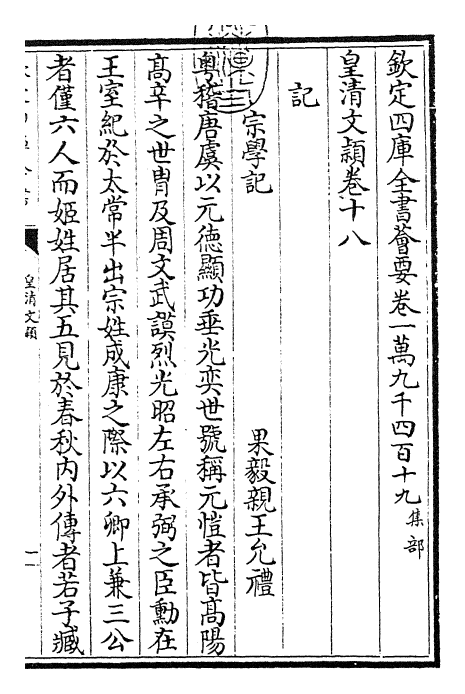 欽定四庫全書薈要卷一萬九千四百十九集部
皇清文穎卷十八
記
宗學記 果毅親王允禮
粤稽唐虞以元德顯功垂光奕世號稱元愷者皆高陽
高辛之世胄及周文武謨烈光昭左右承弼之臣勳在
王室紀於太常半出宗姓成康之際以六卿上兼三公
者僅六人而姬姓居其五見於春秋內外傳者若子臧
皇清文穎
一